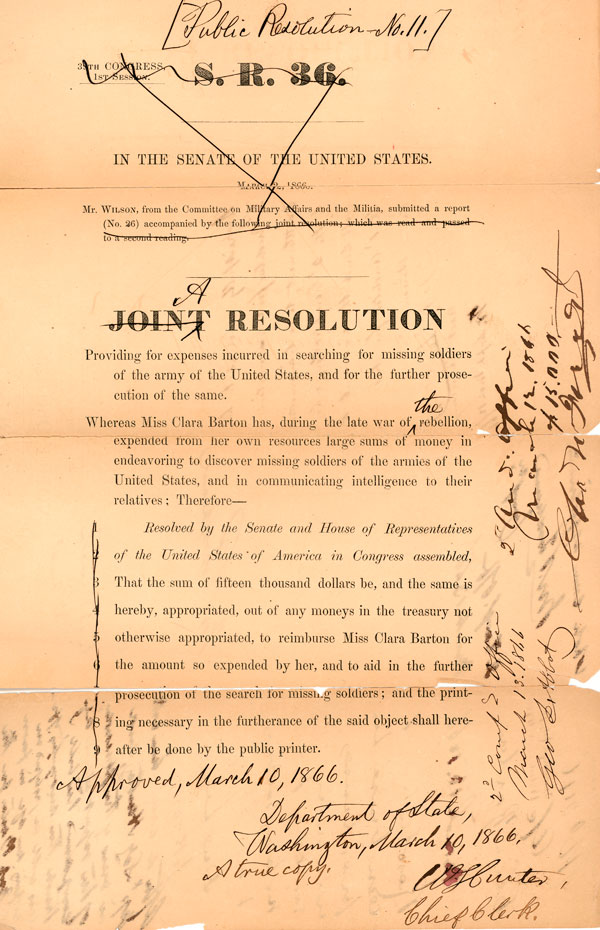 [Public Resolution—No. 11.]
39TH CONGRESS,
1ST SESSION.
S. R. 36.
IN THE SENATE OF THE UNITED STATES.
MARCH 1866.
Mr. WILSON, from the Committee on Military Affairs and the Militia, submitted a report
(No. 26) accompanied by the following joint resolution; which was read and passed
to a second reading.
A
JOINT RESOLUTION
Providing for expenses incurred in searching for missing soldiers
of the army of the United States, and for the further prose-
cution of the same.
the
Whereas Miss Clara Barton has, during the late war of rebellion,
expended from her own resources large sums of money in
endeavoring to discover missing soldiers of the armies of the
United States, and in communicating intelligence to their
relatives; Therefore—
1 Resolved by the Senate and House of Representatives
2 of the United States of America in Congress assembled,
3 That the sum of fifteen thousand dollars be, and the same is
4 hereby, appropriated, out of any moneys in the treasury not
5 otherwise appropriated, to reimburse Miss Clara Barton for
6 the amount so expended by her, and to aid in the further
7 prosecution of the search for missing soldiers; and the print-
8 ing necessary in the furtherance of the said object shall here-
9 after be done by the public printer.
Approved, March 10, 1866.
Department of State,
Washington, March 10, 1866.
A true copy.
W Hunter,
Chief Clerk.
2d Aud. Office
March 12. 1866
$15.000
2d Comp's Office
March 13. 1866
Geo